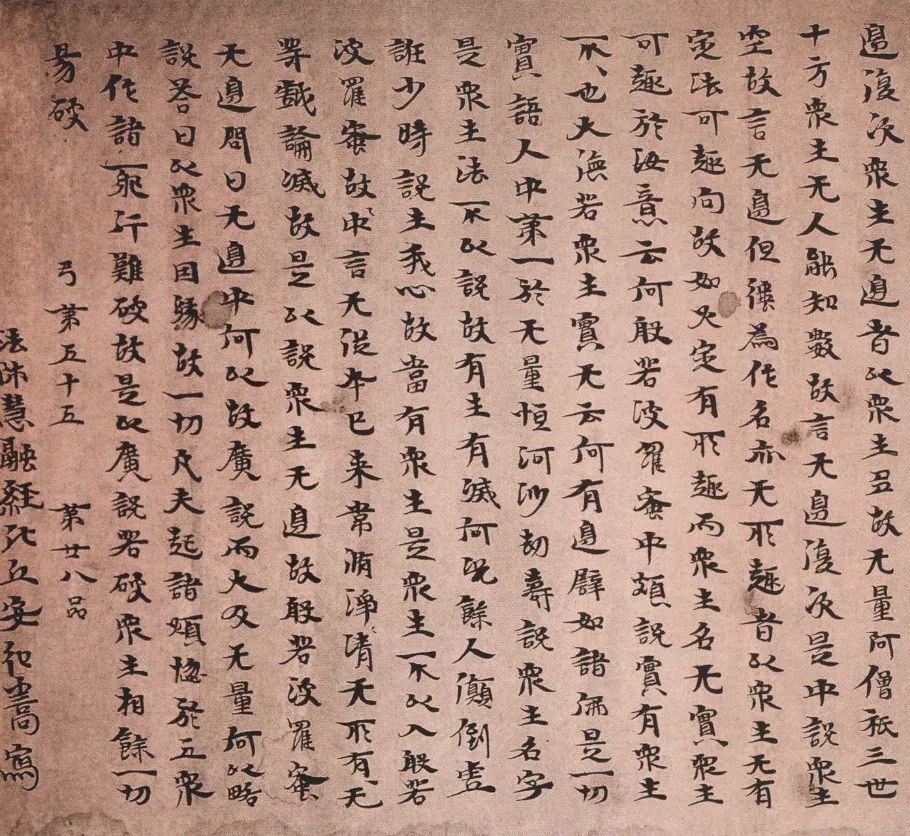 邊復次眾生无邊者以眾生多故无量阿僧祇三世
十方眾生无人能知數故言无邊復次是中說眾生
空故言无邊但彊為作名亦无所趣者以眾生无有
定法可趣向故如火定有所趣而眾生名无實眾生
可趣於汝意云何般若波羅蜜中頗說實有眾生
不、也大德若眾生實无云何有邊譬如諸佛是一切
實語人中第一於无量恒河沙劫壽說眾生名字
是眾生法不以說故有生有滅何況餘人顛倒虛
誑少時說生我心故當有眾生是眾生不以入般若
波羅蜜故中言无從本已来常清淨清无所有、无
等戲論滅故是以說眾生无邊故般若波羅蜜
无邊問曰无邊中何以故廣說而大及无量何以略
說答曰以眾生因緣故一切凡夫起諸煩惱於五眾
中作諸耶行難破故是以廣說若破眾生相餘一切
易破
弓第五十五 第廿八品
法師慧融經 安弘嵩寫